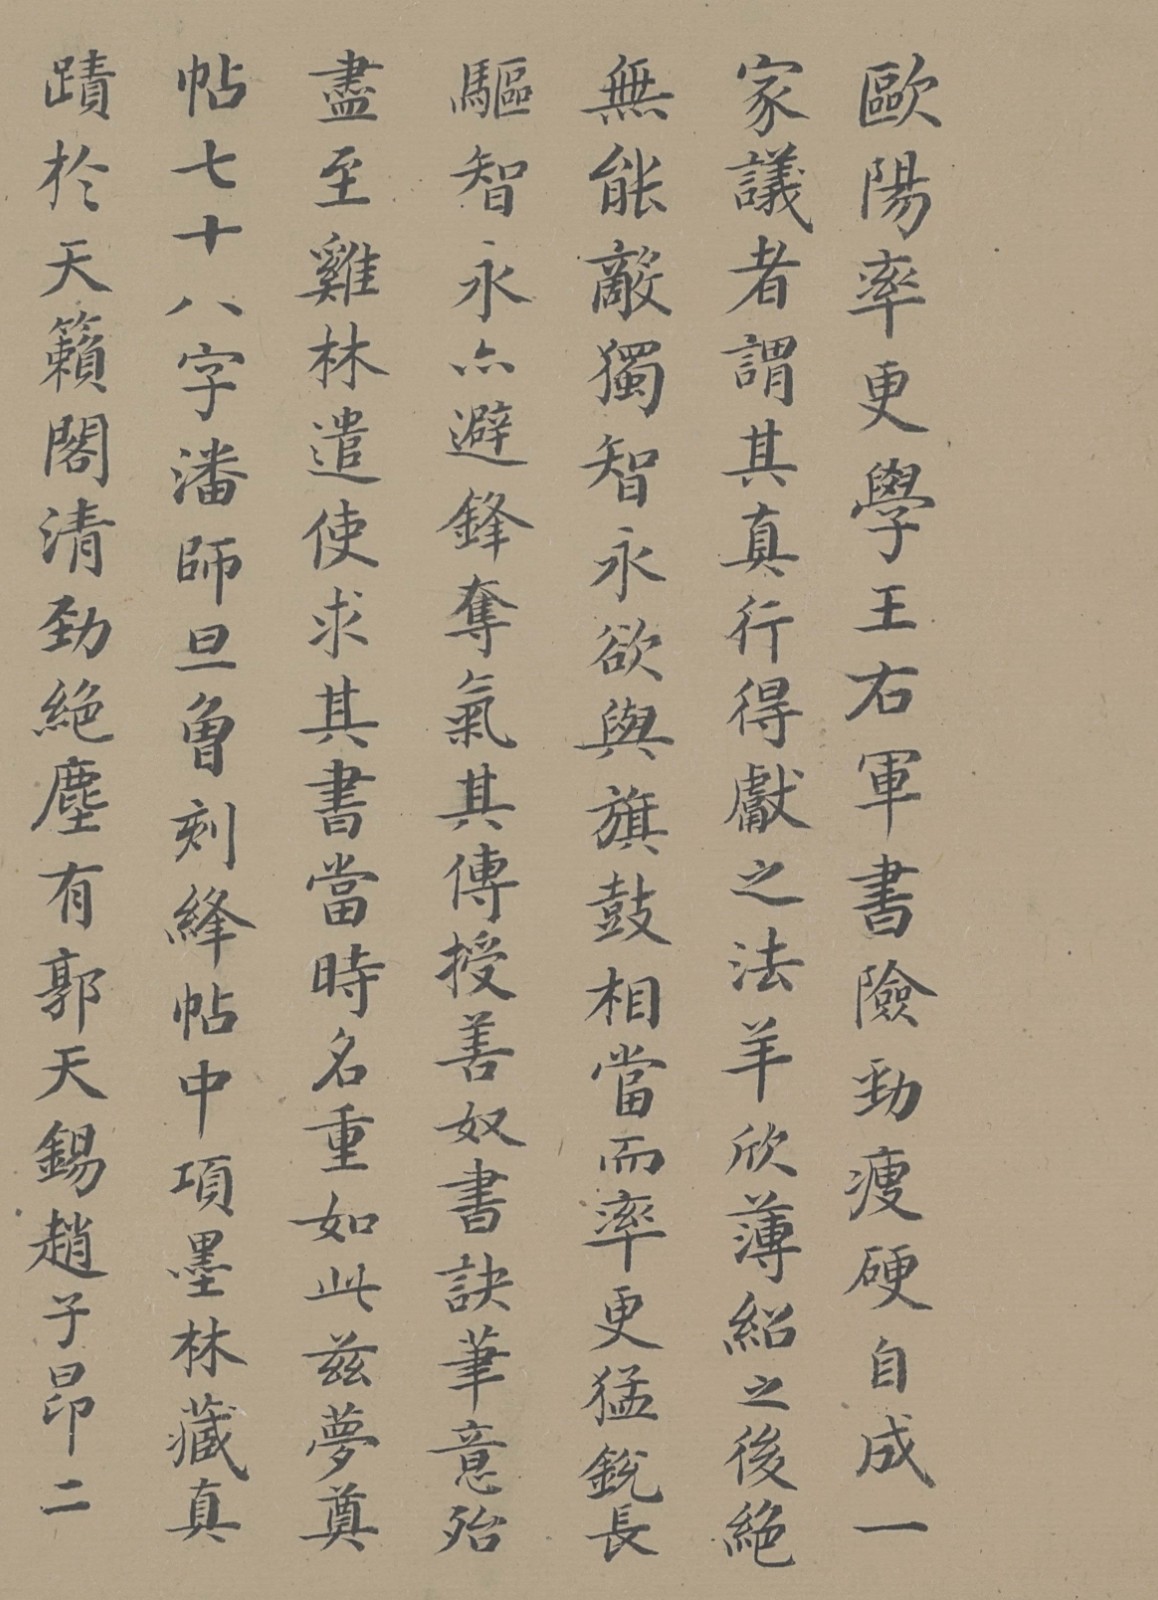 歐陽率更學王右軍書險勁瘦硬自成一
家議者謂其真行得獻之法羊欣薄紹之後絶
無能敵獨智永欲與旗鼓相當而率更猛銳長
驅智永亦避鋒奪氣其傳授善奴書訣筆意殆
盡至雞林遣使求其書當時名重如此兹夢奠
帖七十八字潘師旦曾刻絳帖中項墨林藏真
蹟於天籟閣清勁絶塵有郭天錫趙子昂二